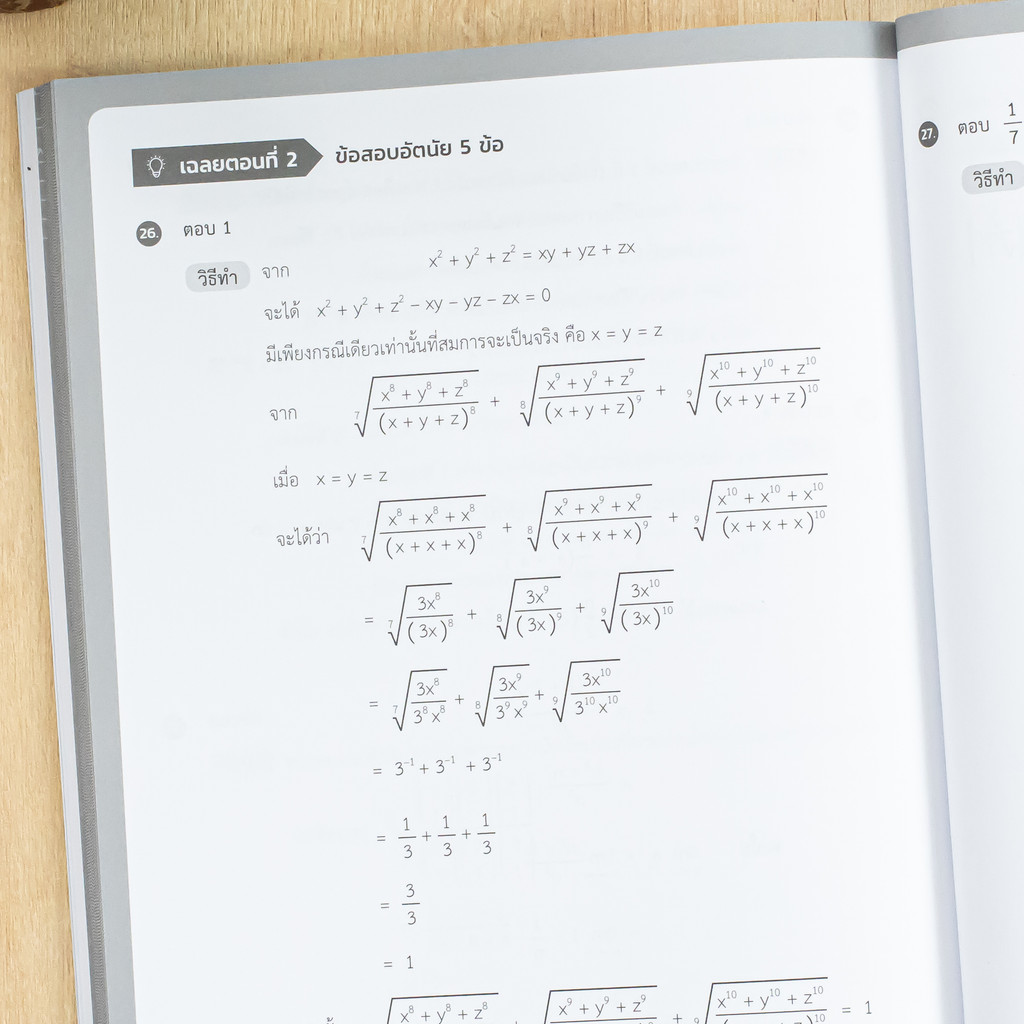 เฉลยตอนที่ 2 ข้อสอบอัตนัย 5 ข้อ
26. ตอบ 1
วิธีทำ จาก x² + y² + z² = xy + yz + zx
จะได้ x² + y² + z² − xy − yz − zx = 0
มีเพียงกรณีเดียวเท่านั้นที่สมการจะเป็นจริง คือ x = y = z
จาก ⁷√((x⁸ + y⁸ + z⁸)/(x + y + z)⁸) + ⁸√((x⁹ + y⁹ + z⁹)/(x + y + z)⁹) + ⁹√((x¹⁰ + y¹⁰ + z¹⁰)/(x + y + z)¹⁰)
เมื่อ x = y = z
จะได้ว่า ⁷√((x⁸ + x⁸ + x⁸)/(x + x + x)⁸) + ⁸√((x⁹ + x⁹ + x⁹)/(x + x + x)⁹) + ⁹√((x¹⁰ + x¹⁰ + x¹⁰)/(x + x + x)¹⁰)
= ⁷√(3x⁸/(3x)⁸) + ⁸√(3x⁹/(3x)⁹) + ⁹√(3x¹⁰/(3x)¹⁰)
= ⁷√(3x⁸/3⁸x⁸) + ⁸√(3x⁹/3⁹x⁹) + ⁹√(3x¹⁰/3¹⁰x¹⁰)
= 3⁻¹ + 3⁻¹ + 3⁻¹
= 1/3 + 1/3 + 1/3
= 3/3
= 1
x⁸ + y⁸ + z⁸ x⁹ + y⁹ + z⁹ + ⁹√ x¹⁰ + y¹⁰ + z¹⁰ = 1
27. ตอบ 1/7
วิธีทำ